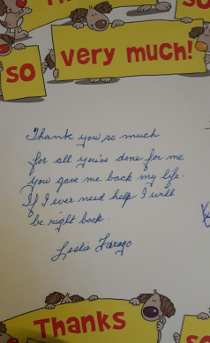 Tha
so
so very much!
Thank you so much
for all you've done for me
you gave me back my life.
If I ever need help I will
be right back.
Leslie Farago
Thanks
so